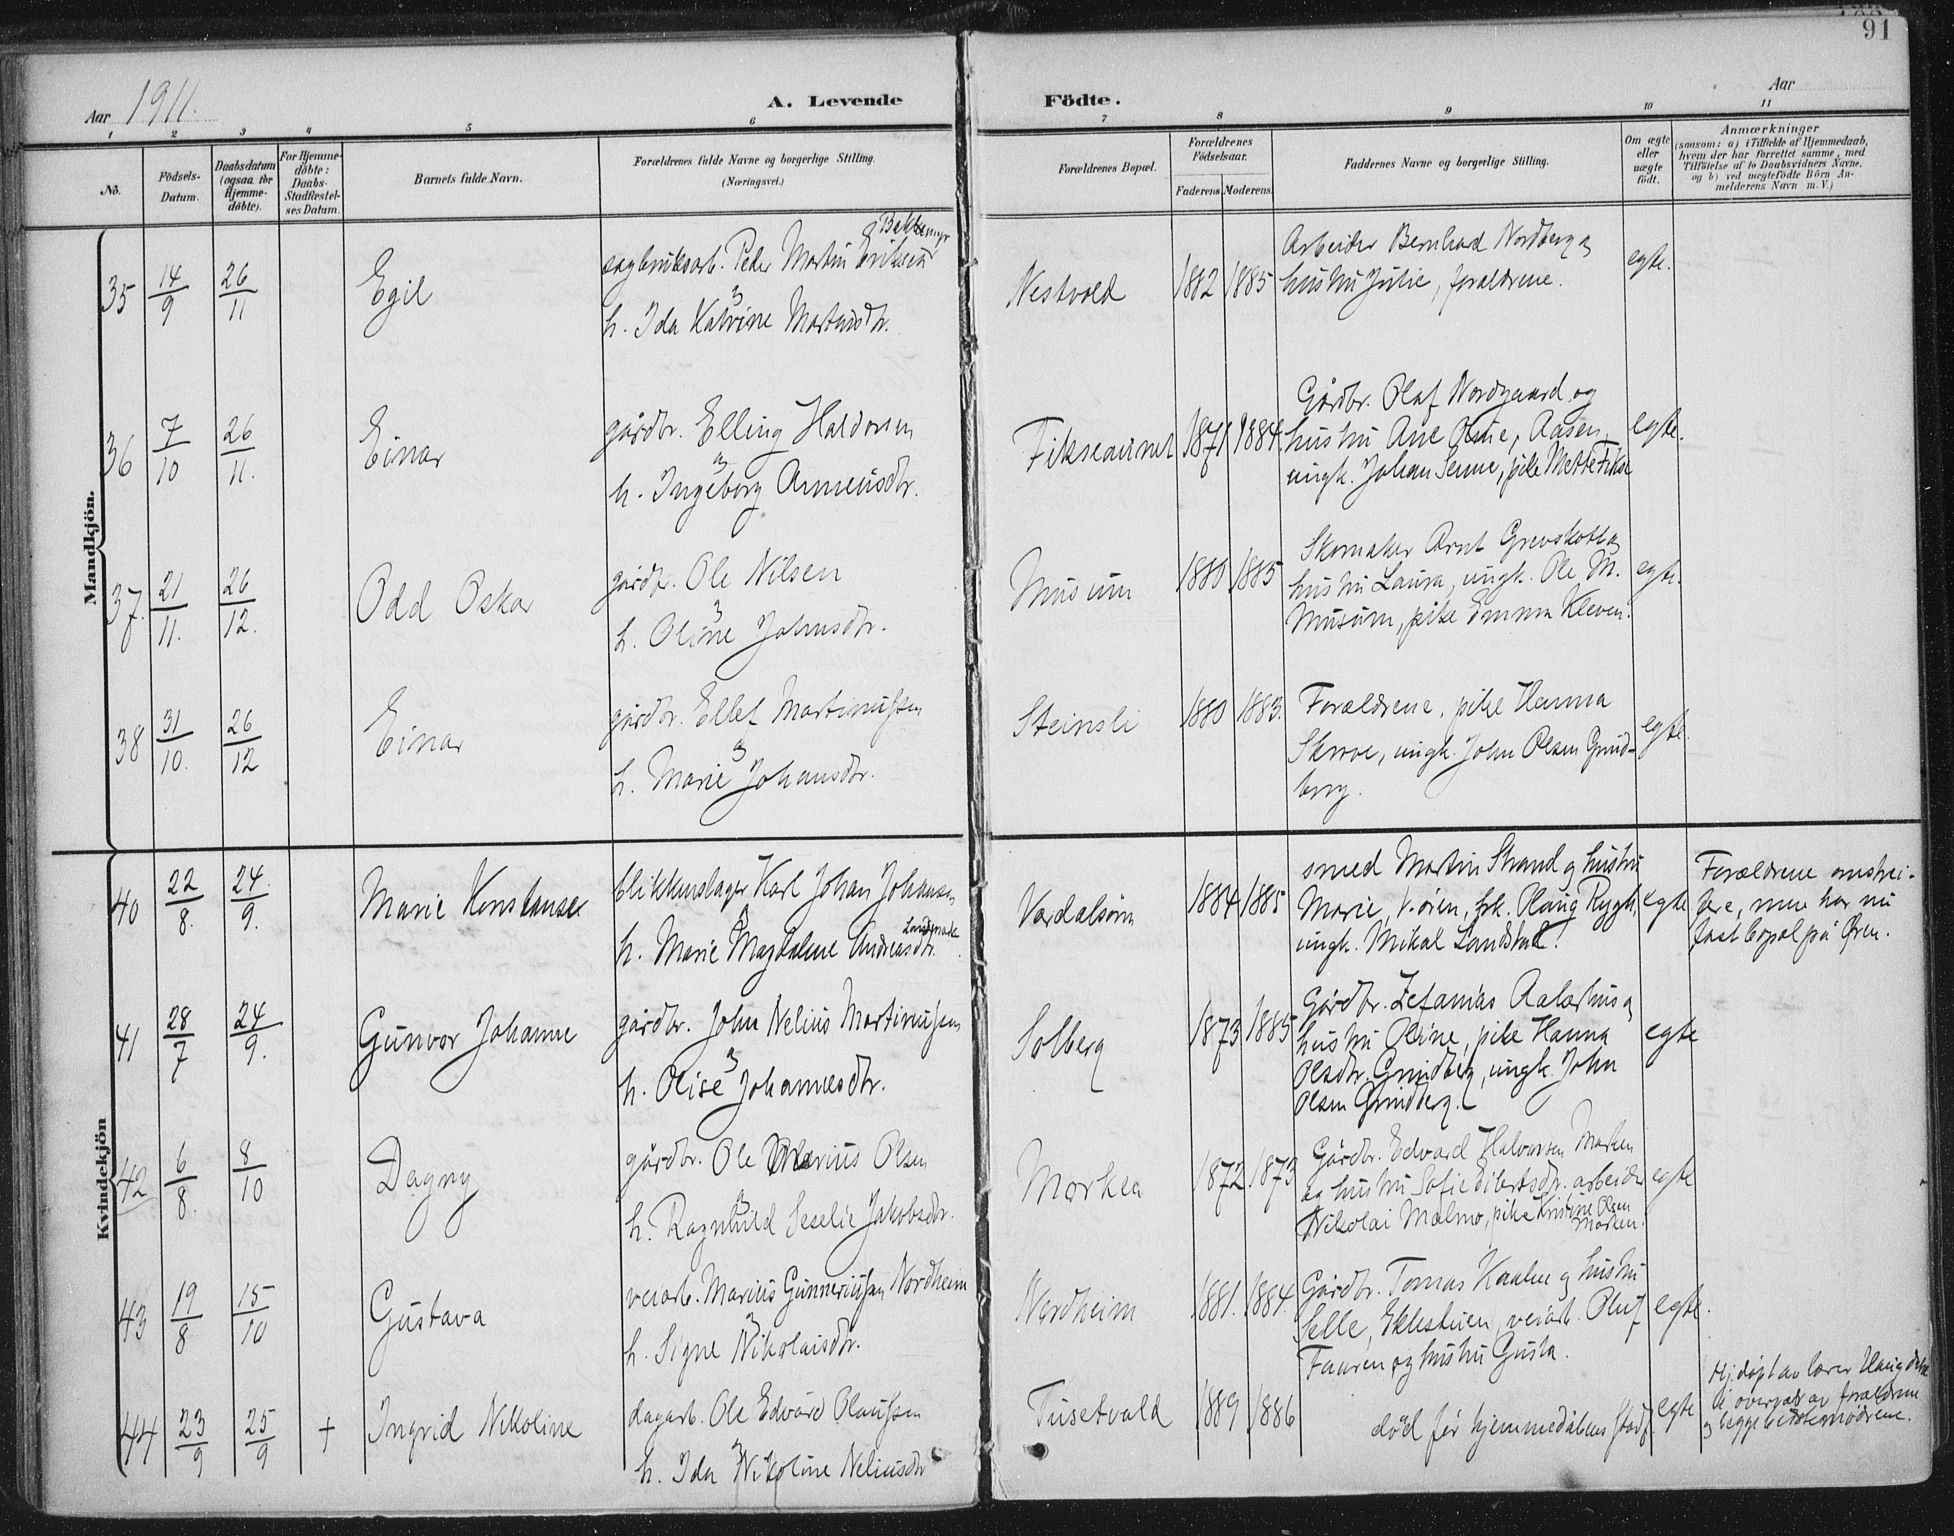 91
Aar 1911.
A. Levende Födte.
Aar
1 2 3 4 5 6 7 8 9 10 11
No. Födsels-Datum. Daabsdatum (ogsaa for Hjemme-döbte). For Hjemme-döbte: Daabs-Stadfæstel-ses Datum. Barnets fulde Navn. Forældrenes fulde Navne og borgerlige Stilling. (Næringsvei.) Forældrenes Bopæl. Forældrenes Födselsaar. Faderens. Moderens. Faddernes Navne og borgerlige Stilling. Om ægte eller uægte födt. Anmærkninger (saasom: a) i Tilfælde af Hjemmedaab, hvem der har forrettet samme, med Tilföielse af to Daabsvidners Navne, og b) ved uægtefödte Börn An-melderens Navn m. V.)
Mandkjön.
35 14/9 26/11 Egil
Bakkemyr
sagbruksarb. Peder Martin Eriksen
h. Ida Katrine Martinsdtr.
Nestvold 1882 1885
Arbeider Bernhard Nordberg og
hustru Julie, forældrene.
egte.
36 7/10 26/11. Einar
gårdbr. Elling Haldorsen
h. Ingeborg
Fikseaunet 1871 1884.
Gårdbr. Olaf Nordgaard og
hustru Ane Oline, Aasen,
ungk. Johan Senne, pike Mette Fikse
egte.
37. 21/11. 26/12. Odd Oskar
gårdbr. Ole Nilsen
h. Oline Johnsdtr.
Musum 1880 1885
Skomaker Arnt Grevskott og
hustru Laura, ungk. Ole M.
Musum, pike Emma Kleven.
egte.
38 31/10. 26/12 Einar
gårdbr. Ellef Martinussen
h. Marie Johansdtr.
Steinsli 1880 1883.
Forældrene, pike Hanna
Skrove, ungk. John Olsen Grind-
berg.
egte.
Kvindekjön
40 22/8. 24/9. Marie Konstanse
blikkenslager Karl Johan Johansen
h. Marie Magdalene Andreasdtr.
Verdalsøren 1884 1885
smed Martin Strand og hustru
Marie, V.ören, frk. Olaug Rygh,
ungk. Mikal Landstad.
egte
Forældrene omstrei-
fere, men har nu
fast bopæl på Øren.
41 28/7 24/9. Gunvor Johanne
gårdbr. John Nelius Martinussen
h. Olise Johannesdtr.
Solberg 1873 1885
Gårdbr. Zefanias Aakerhus og
hustru Oline, pike Hanna
Olsdtr. Grindberg, ungk. John
Olsen Grindberg.
egte
42 6/8. 8/10 Dagny
gårdbr. Ole Marius Olsen
h. Ragnhild Seselie Jakobsdtr.
Marken 1872 1873
Gårdbr. Edvard Halvorsen Marken
og hustru Sofie Eibertsdtr. arbeider
Nikolai Malmo, pike Kristine Olsen
Marken.
egte
43 19/8 15/10 Gustava
veiarb. Marius Gunneriussen Nordheim
h. Signe Nikolaisdtr.
Nordheim 1881. 1884.
Gårdbr. Tomas Kaalen og hustru
Selle, Eklestuen, veiarb. Oluf
Faaren og hustru Gusta.
egte.
44 23/9 25/9 + Ingrid Nikoline
dagarb. Ole Edvard Olaussen
h. Ida Nikoline Neliusdtr
Tusetvald 1889 1886
død før hjemmedåbens stadf.
egte
Hj.døpt av lærer Haug
i overvær av forældrene
og begge bedstemødrene.